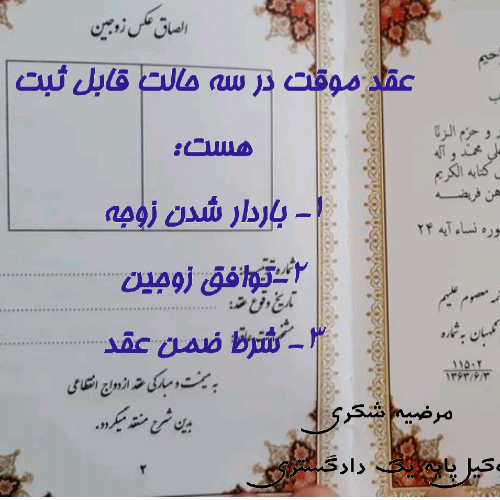 الصاق عکس زوجین
عقد موقت در سه حالت قابل ثبت
هست:
۱- باردار شدن زوجه
۲-توافق زوجین
۳- شرط ضمن عقد
شماره ترتیب:
تاریخ وقوع عقد:
به میمنت و مبارکی عقد ازدواج انقطاعی
بدین شرح منعقد میگردد.
۲
حیم
ب
و حرّم الزنا
لی محمّد و آله
کتابه الکریم
هن فریضـــه
وره نساء آیه ۲۴
معصوم علیم
نگهبان به شماره
۱۱۵۰۲
۱۳۶۳/۶/۳
مرضیه شکری
وکیل پایه یک دادگستری